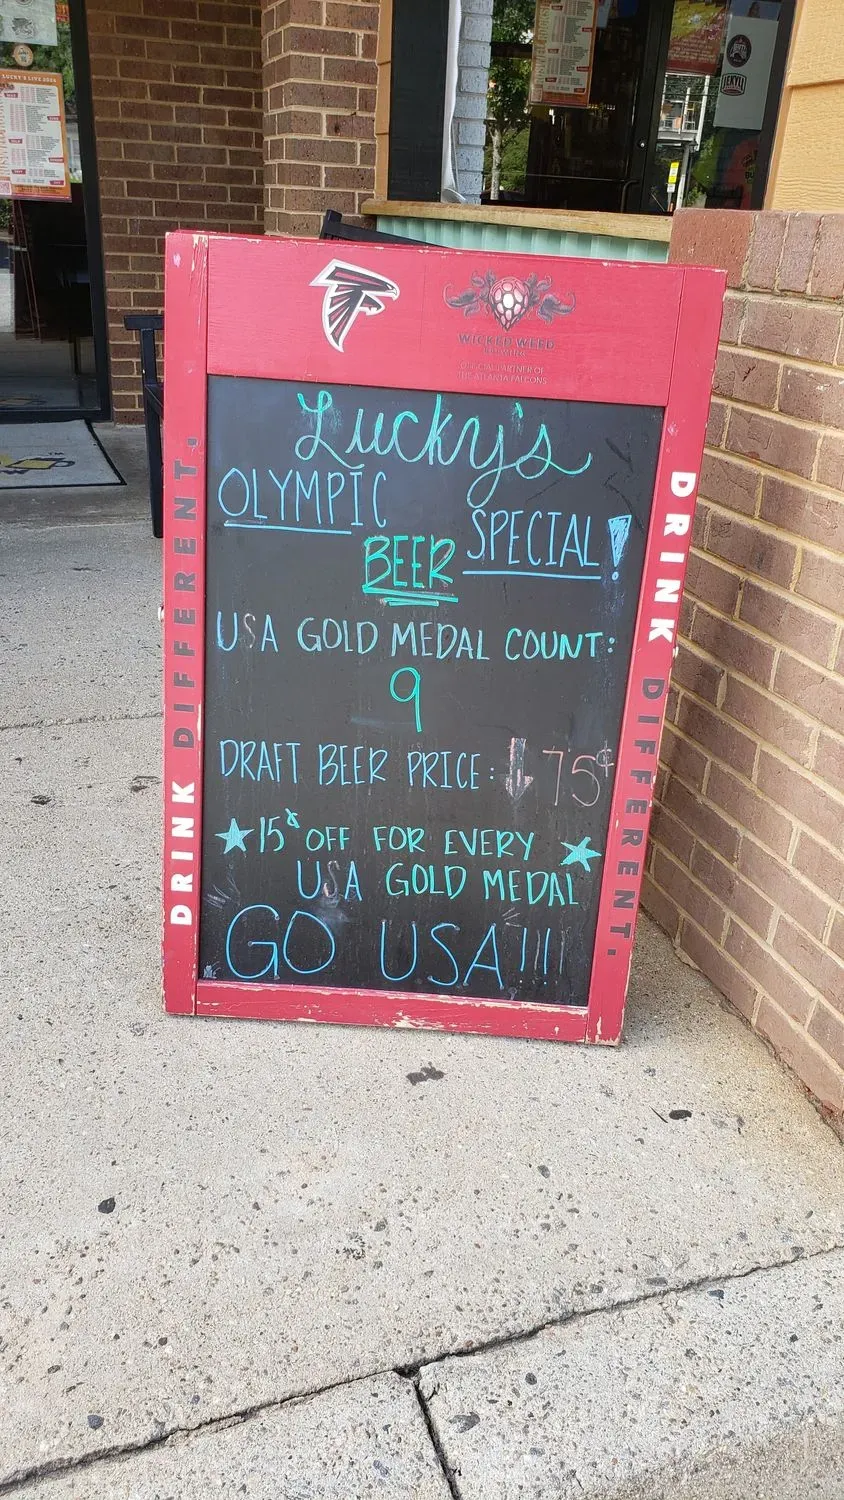 LUCKY'S LIVE 2024
JEKYLL
WICKED WEED
BREWING
OFFICIAL PARTNER OF
THE ATLANTA FALCONS
Lucky's
OLYMPIC
BEER SPECIAL!
USA GOLD MEDAL COUNT:
9
DRAFT BEER PRICE: ↓ 75¢
★ 15¢ OFF FOR EVERY ★
USA GOLD MEDAL
GO USA!!!!
DRINK DIFFERENT.
DRINK DIFFERENT.